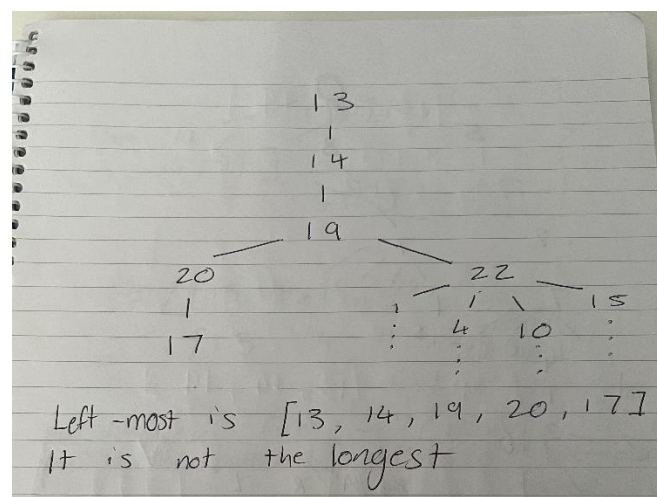 13
14
19
20 22
1 4 10 15
17
Left-most is [13, 14, 19, 20, 17]
It is not the longest